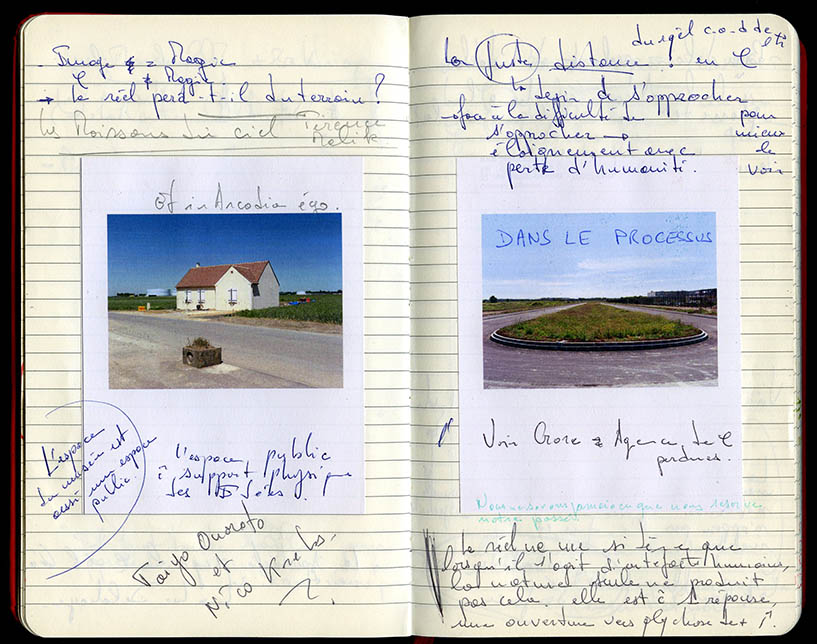 - Image = Magie
Magie
→ Le réel perd-t-il du terrain ?
Les Moissons du ciel Terence
Malik
Et in Arcadia égo.
L'espace
du musée est
aussi un espace
public.
l'espace public
support physique
des
Taiyo Onorato
et
Nico Krebs.
La juste distance ! en
c-o-d de
s'approcher
face à la difficulté de
s'approcher →
éloignement avec
perte d'humanité.
pour
mieux
le
voir
DANS LE PROCESSUS
Voir Agence de
perdues.
Nous ne savons jamais ce que nous réserve
notre passé.
Le réel ne me que
lorsqu'il s'agit d'artefacts humains,
la nature seule ne produit
pas cela. elle est à réponse,
une ouverture vers